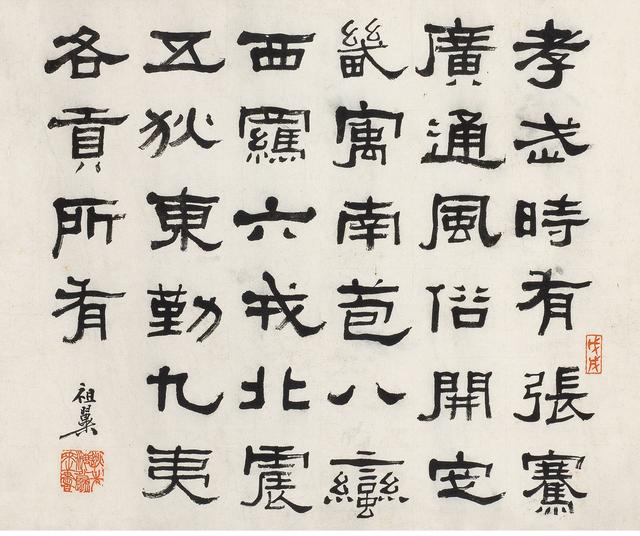 孝武時有張騫
廣通風俗開定
畿寓南苞八蠻
西羈六戎北震
五狄東勤九夷
各貢所有
祖翼
戊戌